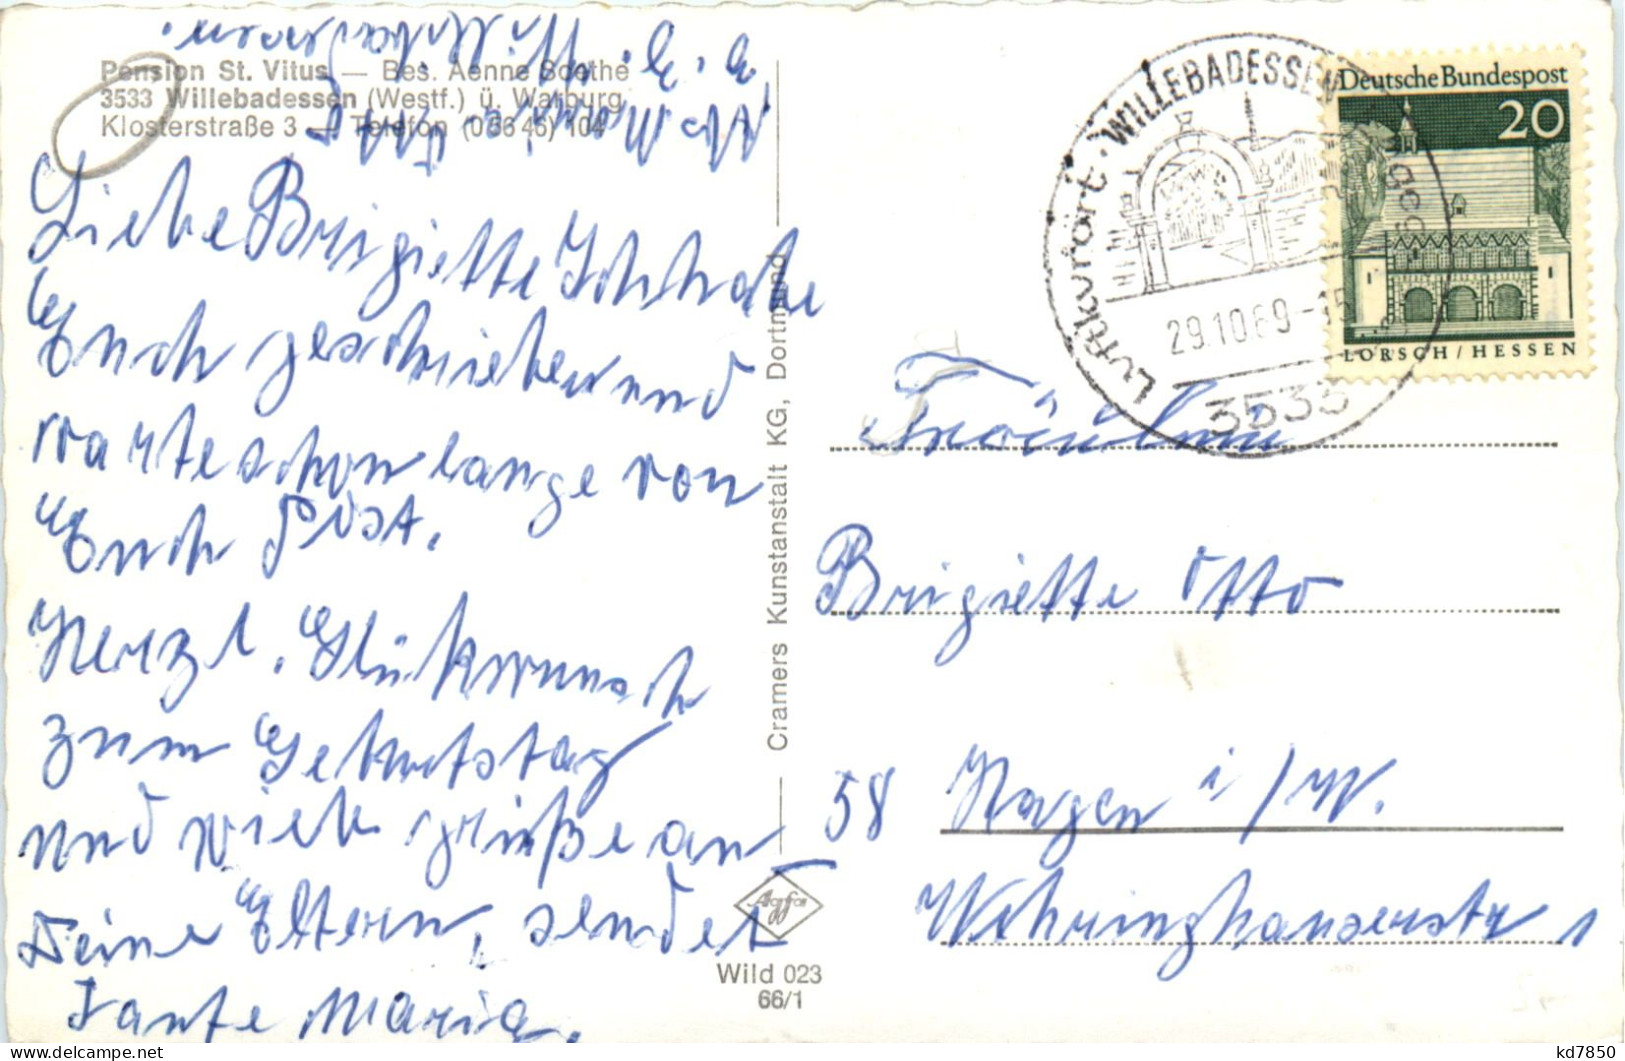 Pension St. Vitus — Bes. Aenne Goethe
3533 Willebadessen (Westf.) ü. Warburg
Klosterstraße 3 — Telefon (0 56 46) 104
Liebe Brigiette Ich habe
Euch geschrieben und
warte schon lange von
Euch Post.
Herzl. Glükwunsch
zum Geburtstag
und viele grüße an
Deine Eltern, sendet
Tante Maria.
Cramers Kunstanstalt KG, Dortmund
Agfa
Wild 023
66/1
Luftkurort · WILLEBADESSEN
29.10.69-15
3533
Deutsche Bundespost
20
LORSCH / HESSEN
Fräulein
Brigiette Otto
58 Hagen i/W.
Wehringhauserstr 1
kd7850